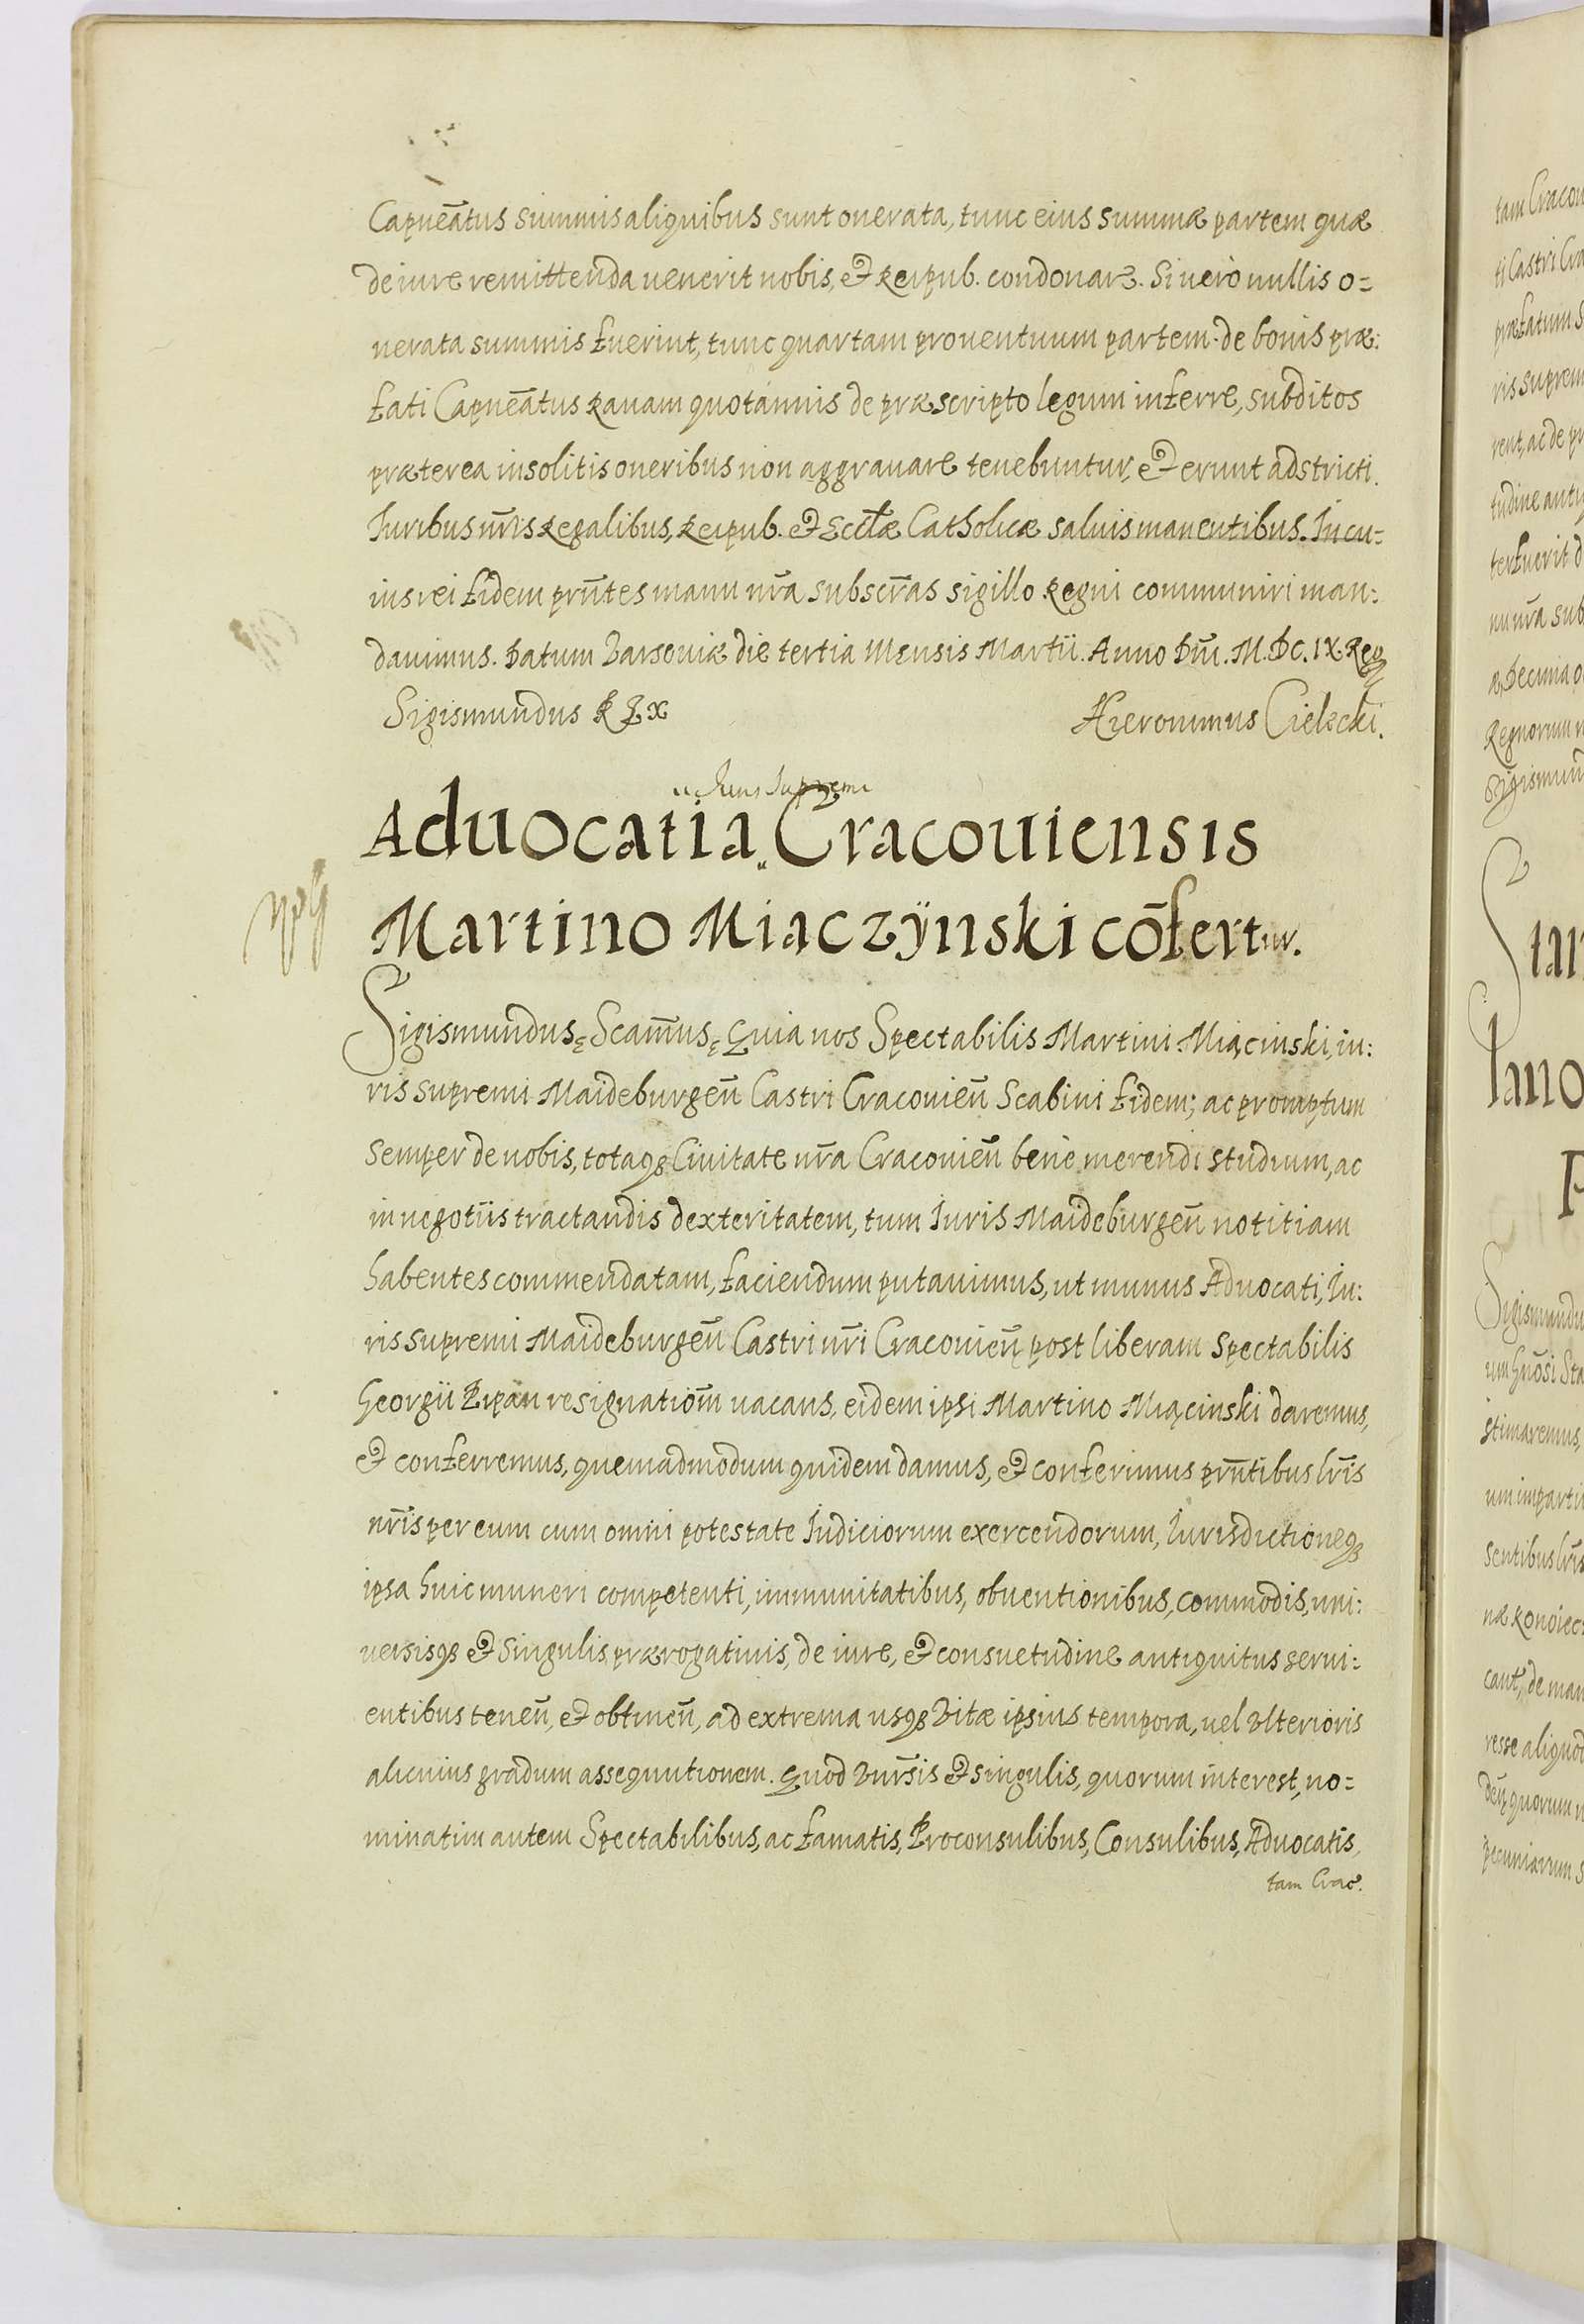 Capneātus summis aliquibus sunt onerata, tunc eius summæ partem quæ
de iure remittenda uenerit nobis, et Reipub. condonare. Si uerò nullis o=
nerata summis fuerint, tunc quartam prouentuum partem de bonis præ:
fati Capneātus Rauam quotannis de præscripto legum inferre, subditos
præterea insolitis oneribus non aggrauare tenebuntur, et erunt adstricti.
Iuribus nr̄is Regalibus, Reipub. et Eccl̄æ Catholicæ saluis manentibus. In cu=
ius rei fidem prn̄tes manu nr̄a subscr̄as sigillo Regni communiri man:
dauimus. Datum Varsouiæ die tertia Mensis Martii. Anno Dn̄i. M.DC.IX. Reg
Sigismundus REX
Hieronimus Cielecki.
Iuris Supremi
Aduocatia Cracouiensis
Martino Miaczÿnski cōfertur.
Sigismundus, Scām̄us, Quia nos Spectabilis Martini Miącinski, iu:
ris supremi Maideburgen̄ Castri Cracouien̄ Scabini fidem; ac promptum
semper de nobis, totaqȝ Ciuitate nr̄a Cracouien̄ benè merendi studium, ac
in negotiis tractandis dexteritatem, tum Iuris Maideburgen̄ notitiam
habentes commendatam, faciendum putauimus, ut munus Aduocati, Iu:
ris supremi Maideburgen̄ Castri nr̄i Cracouien̄ post liberam Spectabilis
Georgii Pipan resignatiōm uacans, eidem ipsi Martino Miącinski daremus,
et conferremus, quemadmodum quidem damus, et conferimus prn̄tibus lr̄is
nr̄is per eum cum omni potestate Iudiciorum exercendorum, Iurisdictioneqȝ
ipsa huic muneri competenti, immunitatibus, obuentionibus, commodis, uni:
uersisqȝ et singulis prærogatiuis, de iure, et consuetudine antiquitus serui:
entibus tenen̄, et obtinen̄, ad extrema usqȝ Vitæ ipsius tempora, uel Vlterioris
alicuius gradum assequutionem. Quod Vnr̄sis et singulis, quorum interest, no=
minatim autem Spectabilibus, ac famatis, Proconsulibus, Consulibus, Aduocatis,
tam Crac.